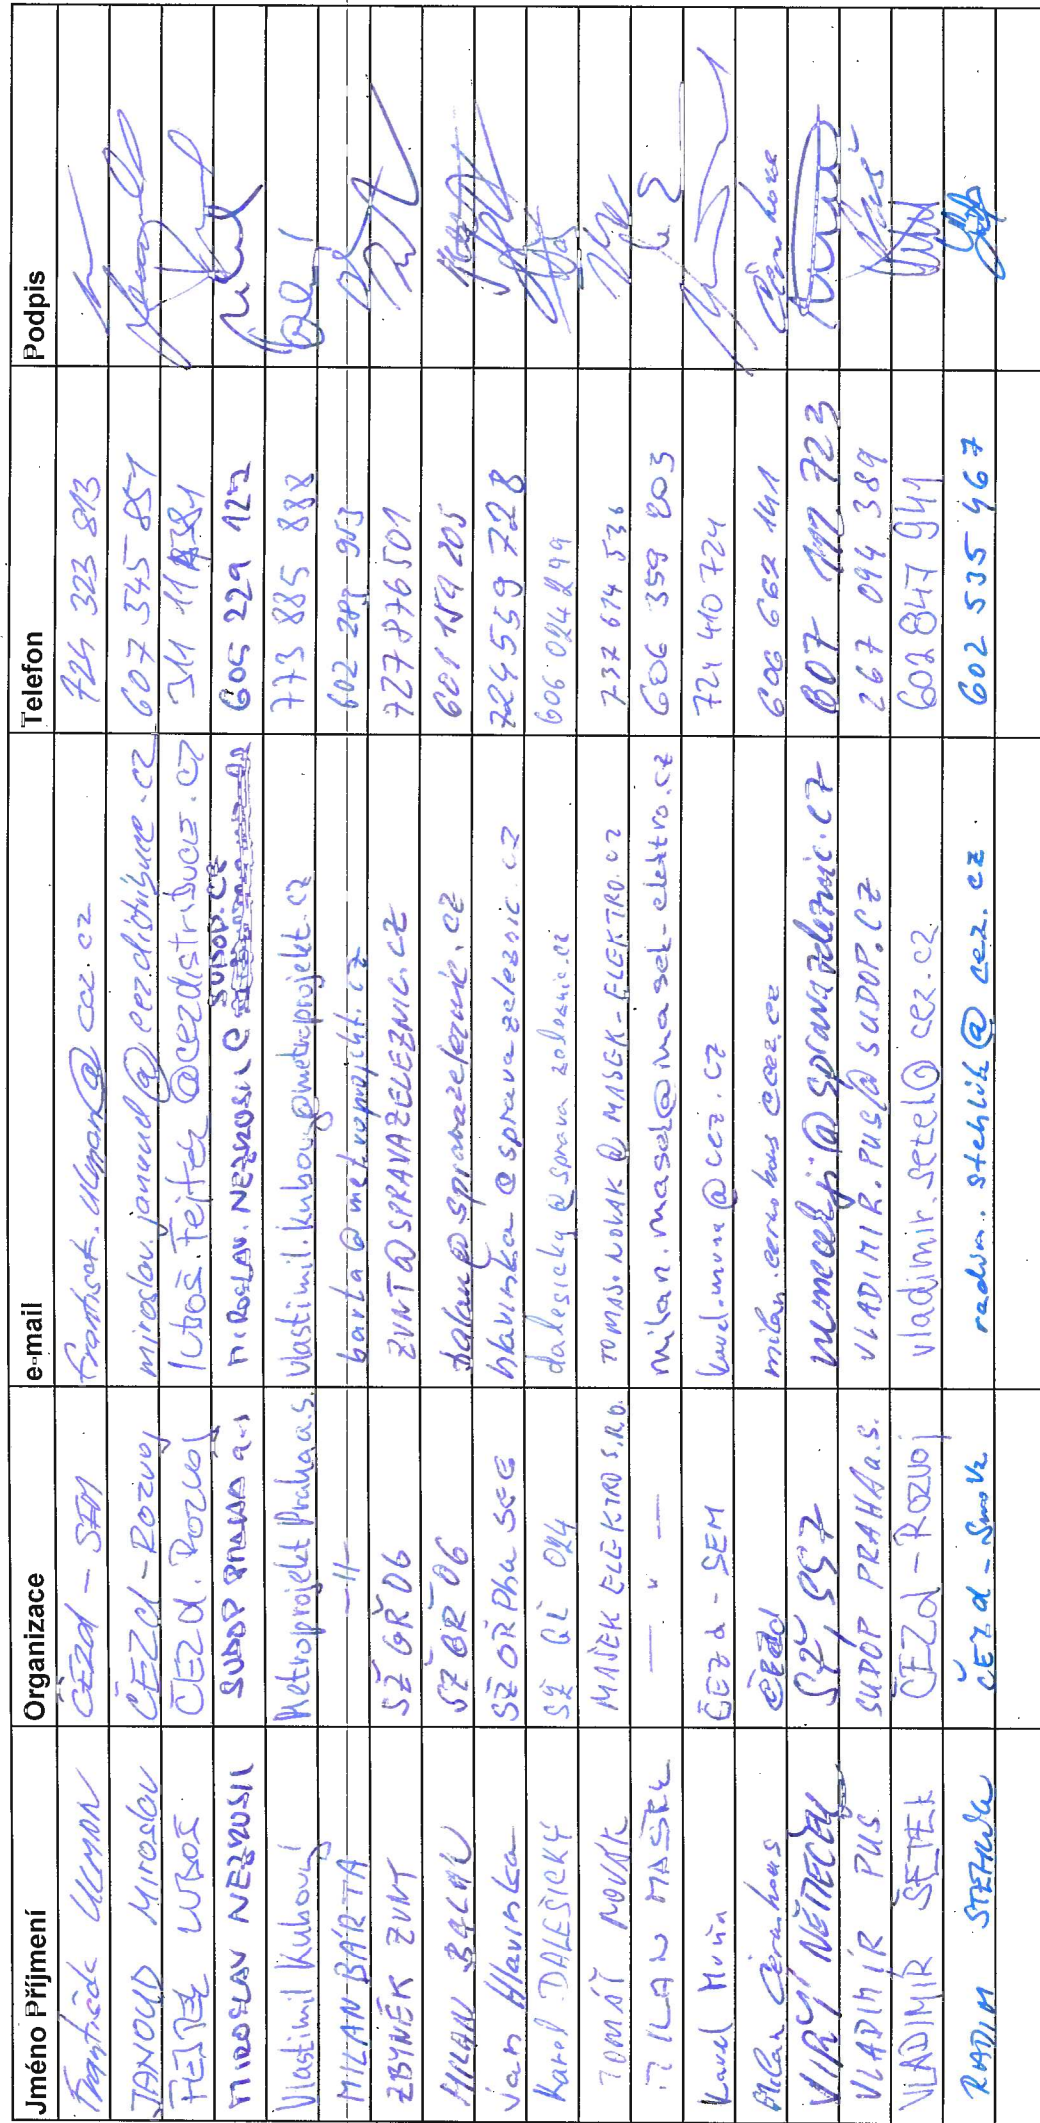 Jméno Příjmení Organizace e-mail Telefon Podpis
František ULMAN ČEZd - SEM frantisek.ulman@cez.cz 724 323 813
JANOUD Miroslav ČEZd - Rozvoj miroslav.janoud@cezdistribuce.cz 607 545 851
FEJTEK LUBOŠ ČEZd. Rozvoj lubos.Fejtek@cezdistribuce.cz
MIROSLAV NEZNUSIL SUDOP PRAHA a.s. MIROSLAV.NEZNUSIL@ SUDOP.CZ 605 229 127
Vlastimil Kubový Metroprojekt Praha a.s. Vlastimil.kubovy@metroprojekt.cz 773 885 888
MILAN BÁRTA -11- barta@metroprojekt.cz 602 287 953
ZBYNĚK ZUNT SŽ GŘ O6 ZUNT@SPRAVAZELEZNIC.CZ 727 876 501
MILAN BALAN SŽ GŘ O6 balan@spravazeleznic.cz 601 159 205
Jan Hlavinka SŽ OŘ Pha SEE hlavinka@spravazeleznic.cz 724 559 728
Karel DALEŠICKÝ SŽ GŘ O24 dalesicky@spravazeleznic.cz 606 024 299
TOMÁŠ NOVÁK MAŠEK ELEKTRO S.R.O. TOMAS.NOVAK@MASEK-ELEKTRO.CZ 737 614 536
MILAN MAŠEK — " — milan.masek@masek-elektro.cz 606 359 203
Karel Muña ČEZd - SEM karel.muna@cez.cz 724 410 724
Milan Černohous ČEZd milan.cernohous@cez.cz 606 662 141
JIŘÍ NĚMEČEK SŽ, SSZ nemecekji@spravazeleznic.cz 607 117 723
VLADIMÍR PUS SUDOP PRAHA a.s. VLADIMIR.PUS@SUDOP.CZ 267 094 389
VLADIMÍR ŠETEK ČEZd - Rozvoj vladimir.setek@cez.cz 602 847 941
RADIM STEHLÍK ČEZd - radim.stehlik@cez.cz 602 535 467